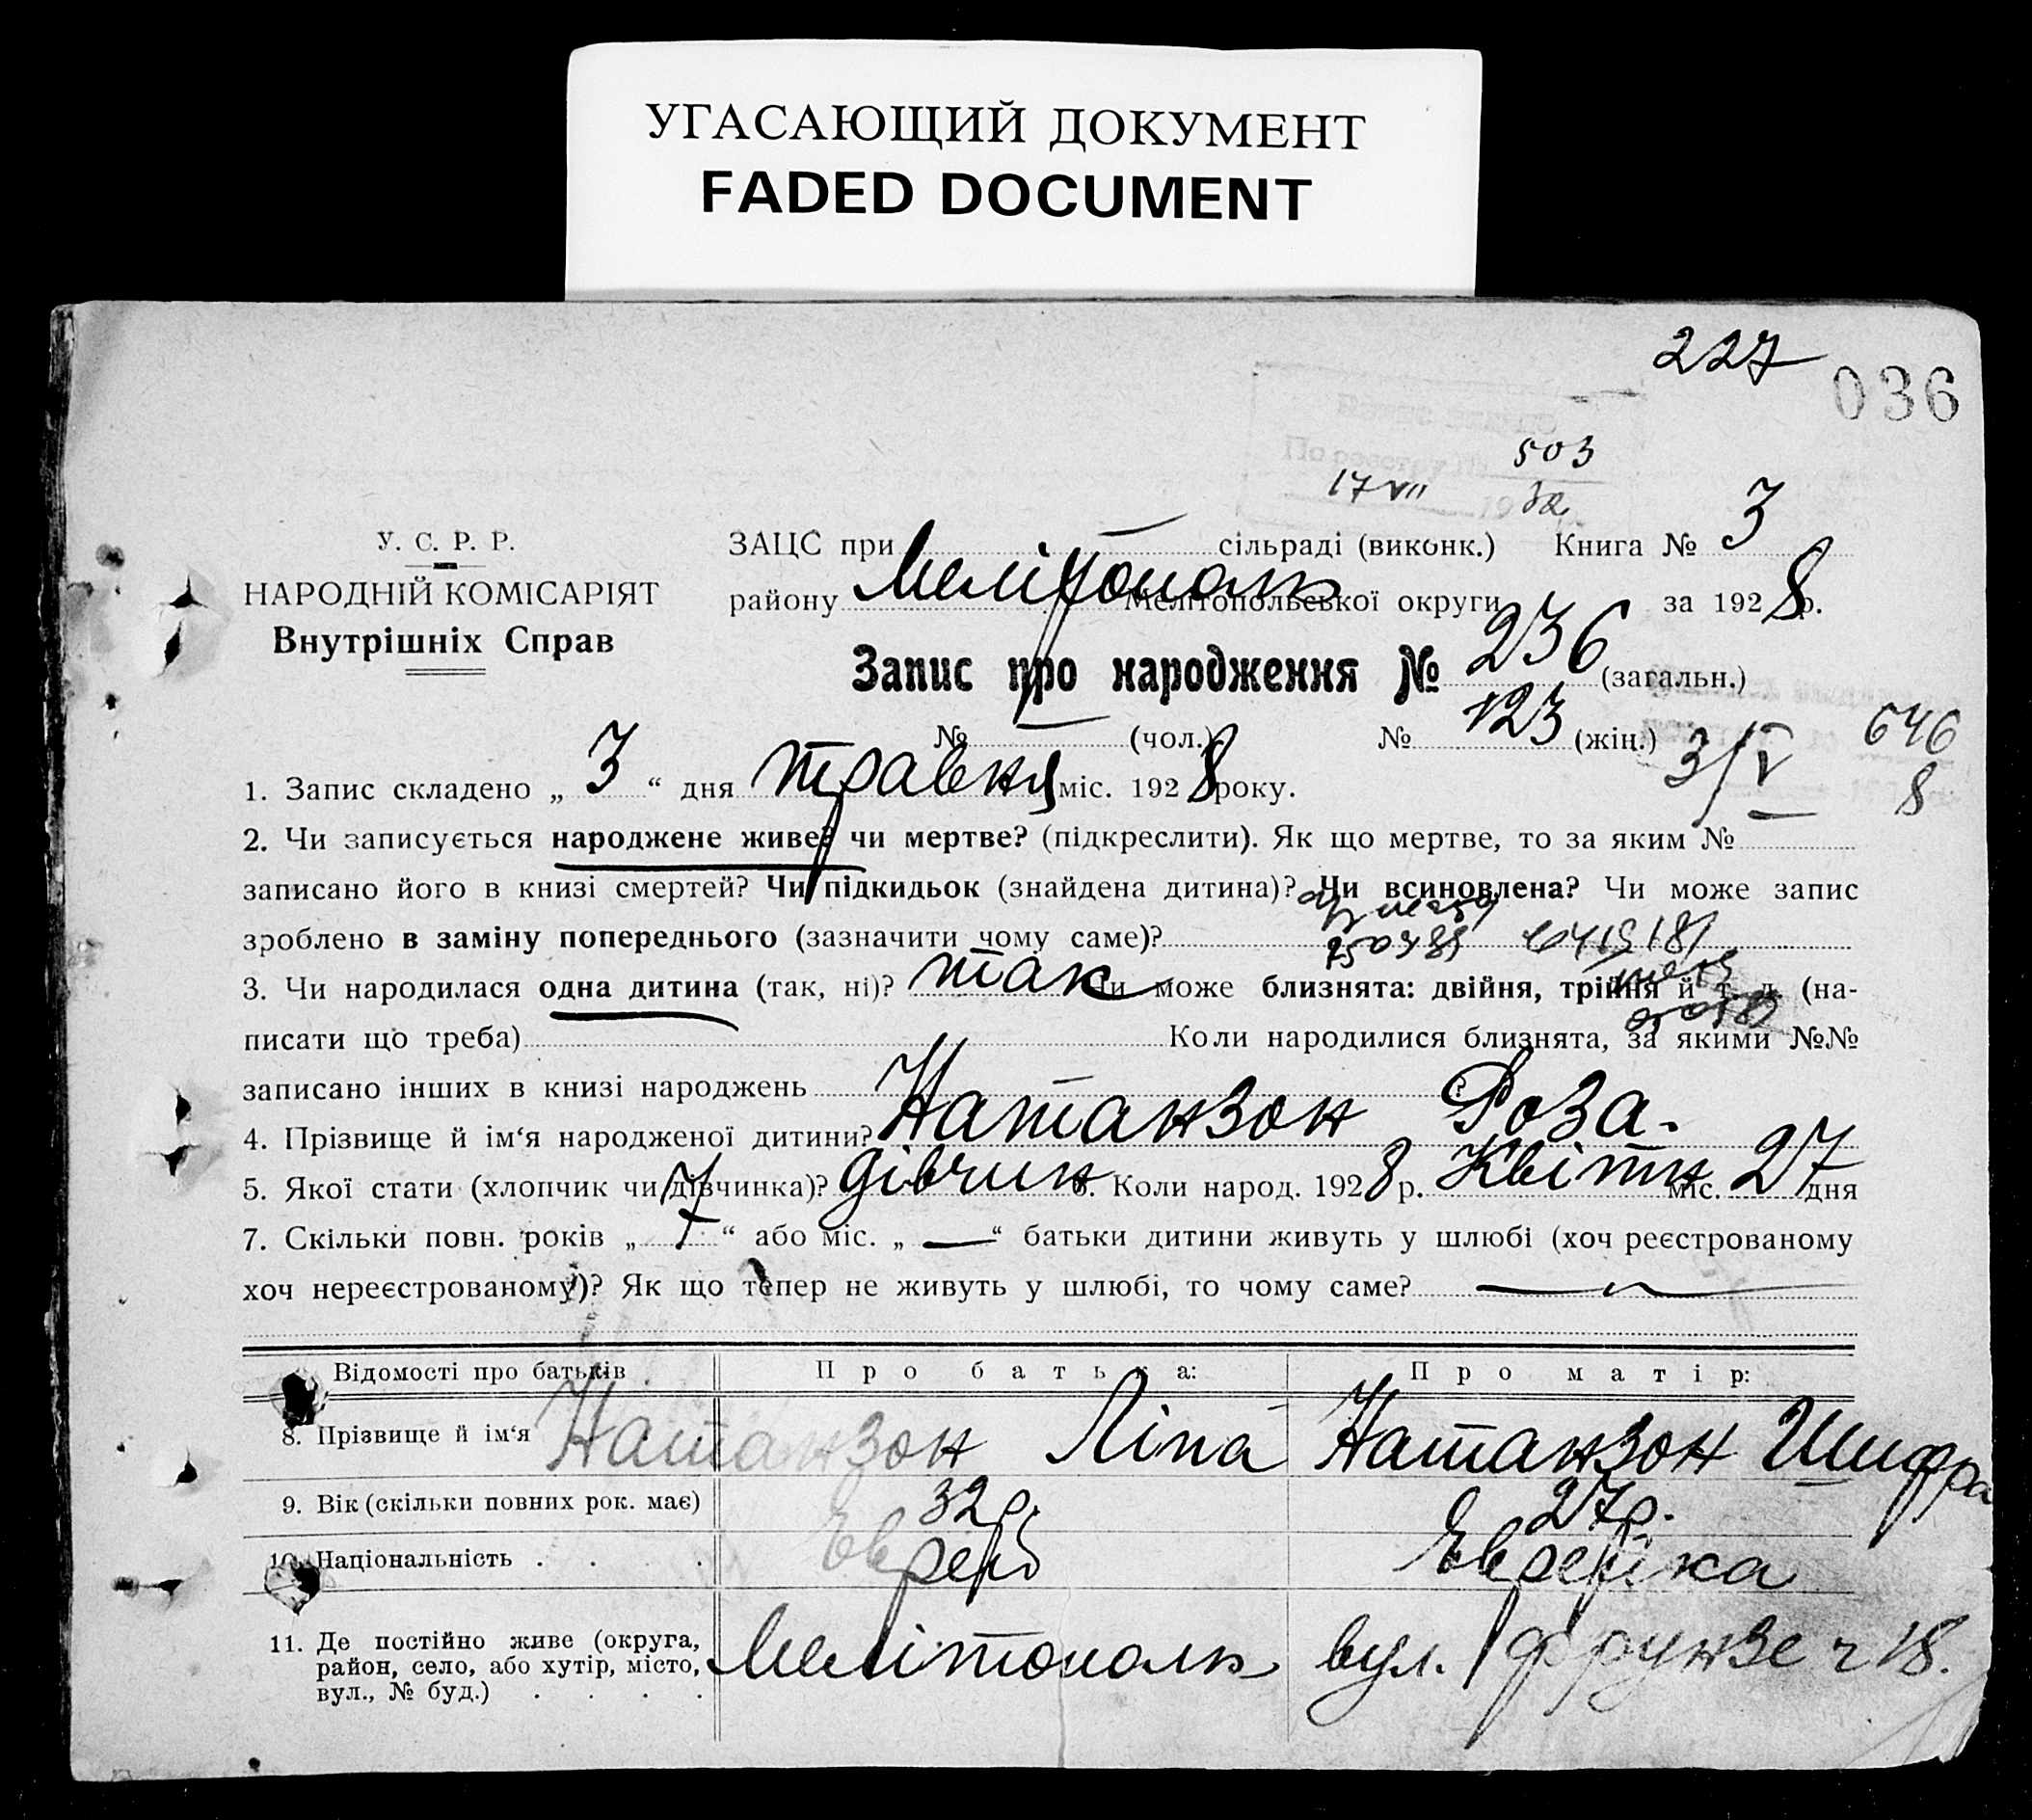 УГАСАЮЩИЙ ДОКУМЕНТ
FADED DOCUMENT
227
036
503
17 VII 19 32
У. С. Р. Р.
НАРОДНІЙ КОМІСАРІЯТ
Внутрішніх Справ
ЗАЦС при сільраді (виконк.) Книга № 3
району Мелітополь Мелітопольської округи за 1928 р.
Запис про народження № 236 (загальн.)
№ — (чол.) № 123 (жін.)
3/V 646
8
1. Запис складено „ 3 “ дня травня міс. 1928 року.
2. Чи записується народжене живе? чи мертве? (підкреслити). Як що мертве, то за яким №
записано його в книзі смертей? Чи підкидьок (знайдена дитина)? Чи всиновлена? Чи може запис
зроблено в заміну попереднього (зазначити чому саме)?
3. Чи народилася одна дитина (так, ні)? так Чи може близнята: двійня, трійня й т. д. (на-
писати що треба) Коли народилися близнята, за якими №№
записано інших в книзі народжень
4. Прізвище й ім‘я народженої дитини? Натанзон Роза.
5. Якої стати (хлопчик чи дівчинка)? дівчин 6. Коли народ. 1928 р. Квітн міс. 27 дня
7. Скільки повн. років „ 7 “ або міс. „ — “ батьки дитини живуть у шлюбі (хоч реєстрованому
хоч нереєстрованому)? Як що тепер не живуть у шлюбі, то чому саме?
Відомості про батьків Про батька: Про матір:
8. Прізвище й ім‘я Натанзон Ліпа Натанзон Шифра
9. Вік (скільки повних рок. має) 32 р. 27 р.
10. Національність . . . . Еврей Еврейка
11. Де постійно живе (округа,
район, село, або хутір, місто,
вул., № буд.) . . . .
Мелітополь вул. Фрунзе ч 18.